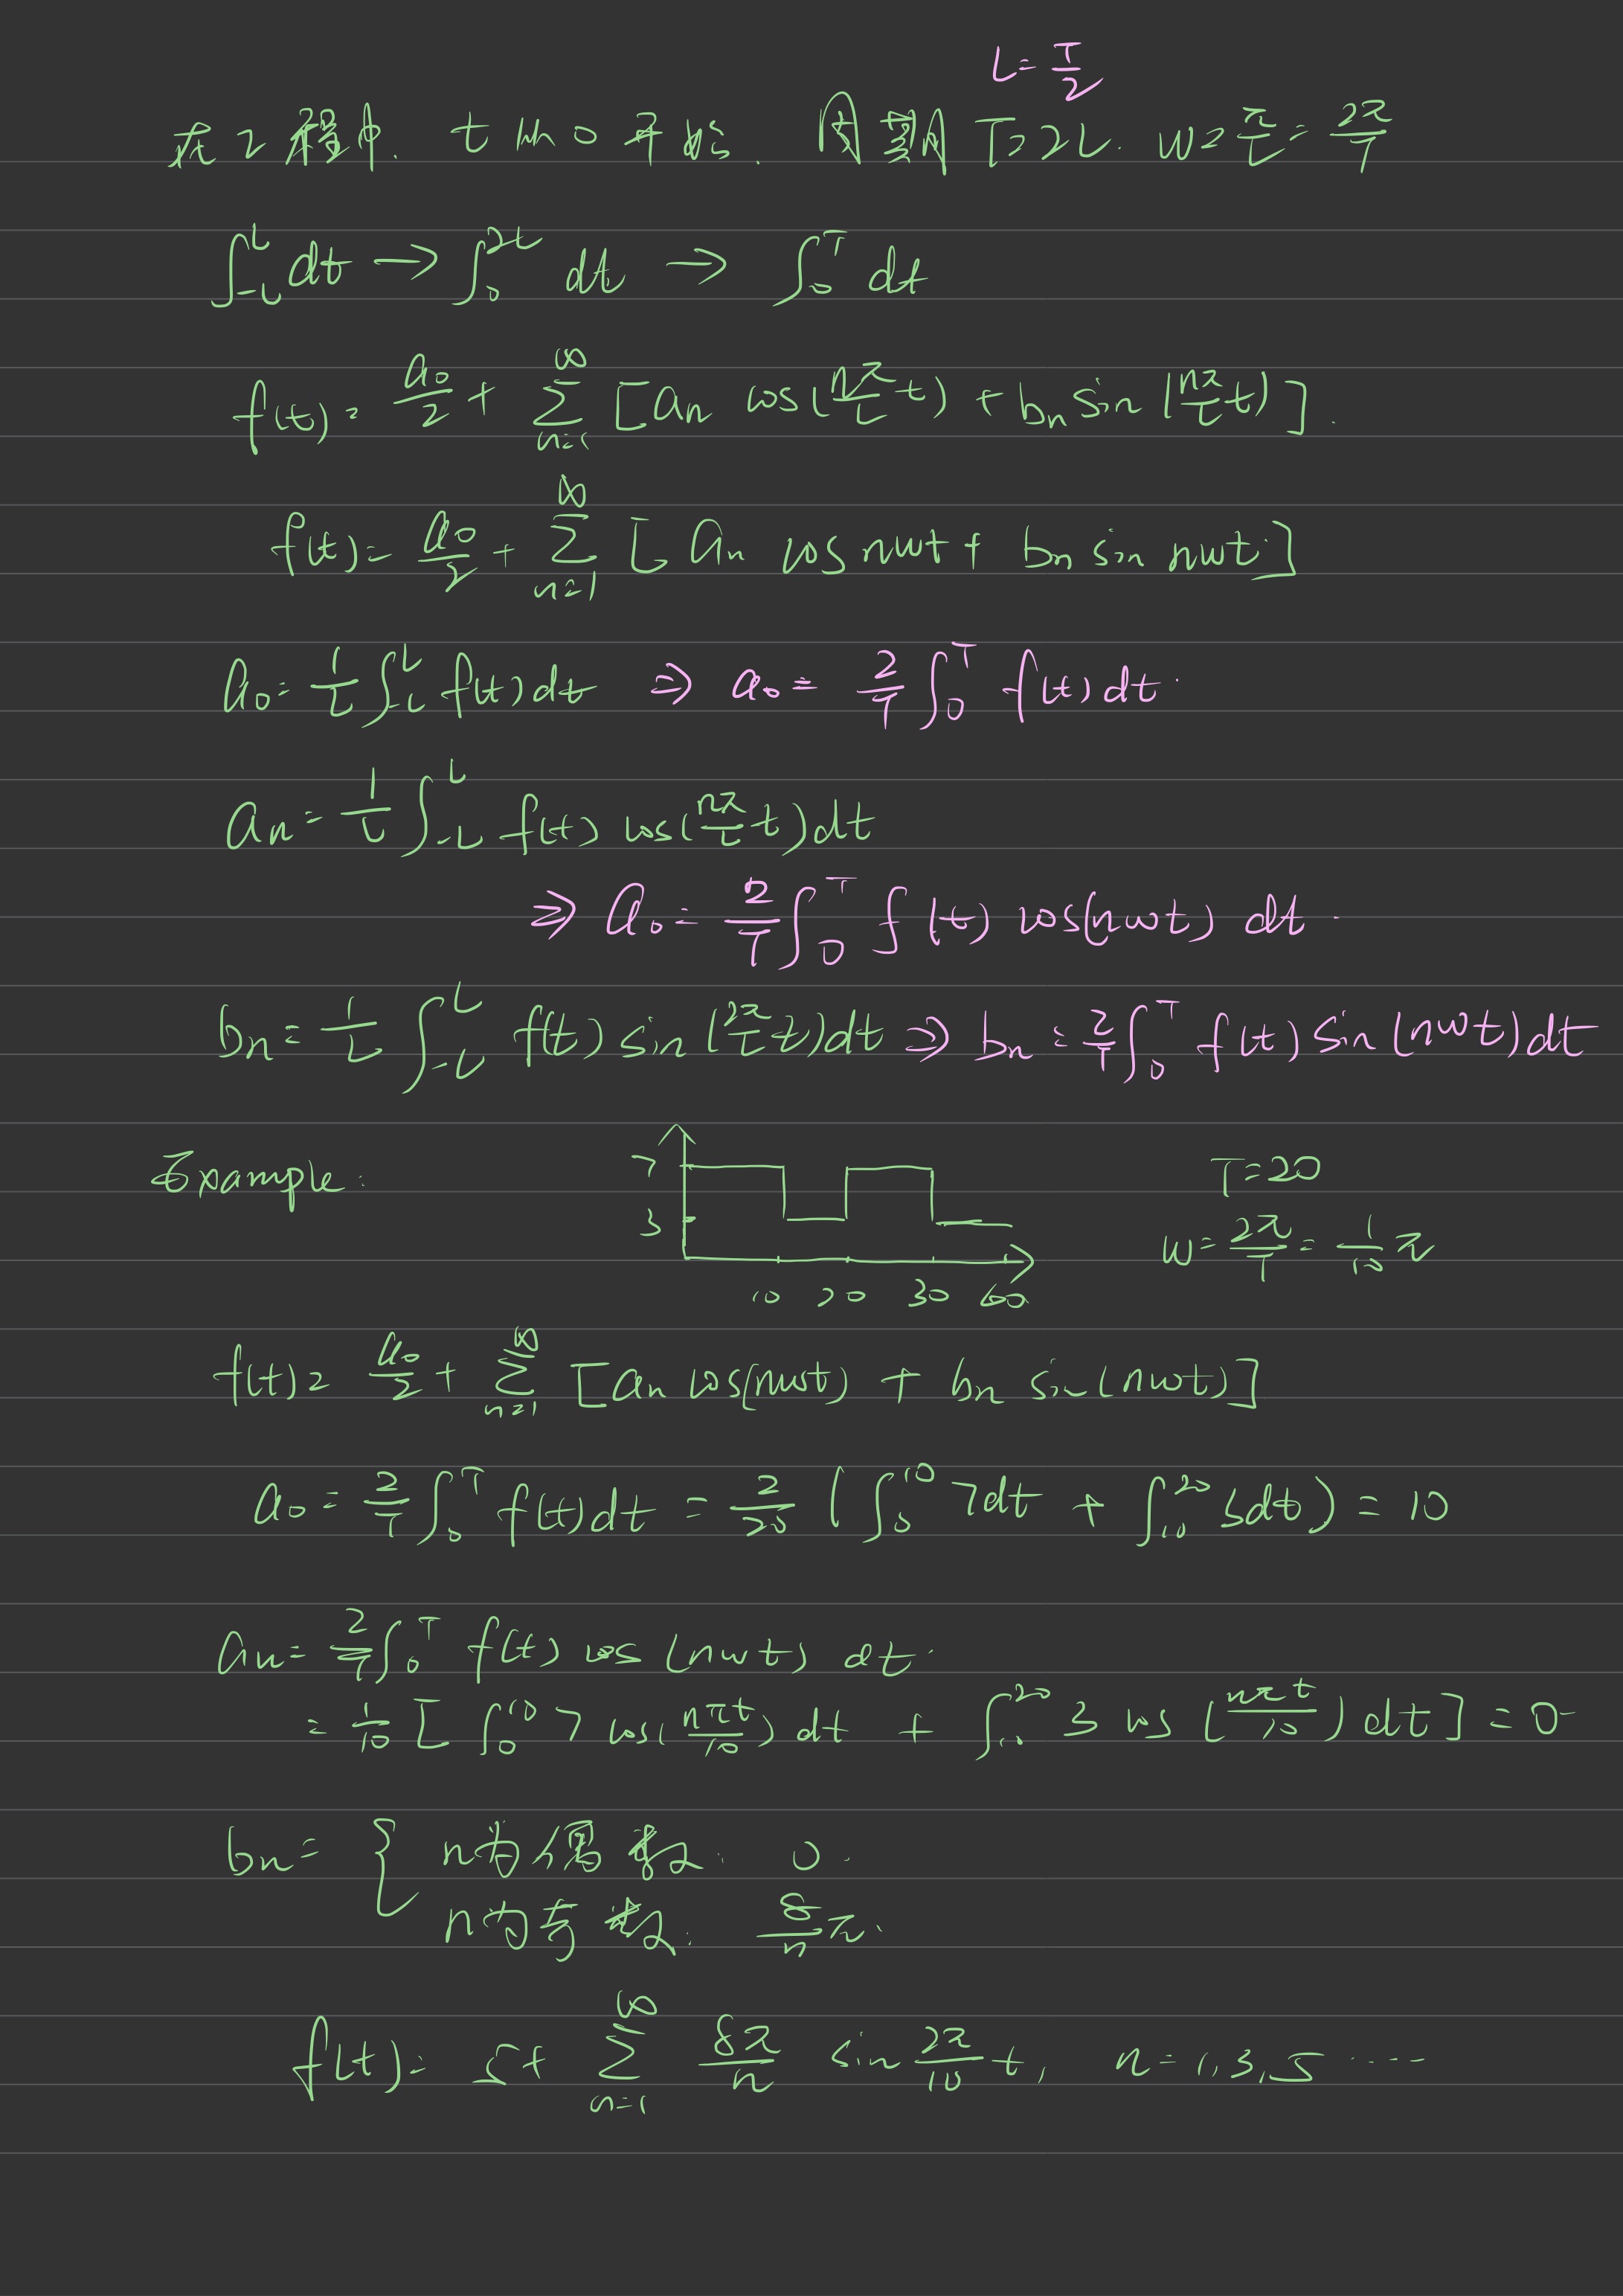 L = T/2
在工程中. t 从 0 开始. 周期 T = 2L. w = π/L = 2π/T
∫_{-L}^{L} dt → ∫_0^{2L} dt → ∫_0^T dt
f(t) = a₀/2 + Σ_{n=1}^∞ [aₙ cos(nπ/L t) + bₙ sin(nπ/L t)].
f(t) = a₀/2 + Σ_{n=1}^∞ [aₙ cos nwt + bₙ sin nwt]
a₀ = 1/L ∫_{-L}^{L} f(t) dt ⇒ a₀ = 2/T ∫_0^T f(t) dt.
aₙ = 1/L ∫_{-L}^{L} f(t) cos(nπ/L t) dt
⇒ a₀ = 2/T ∫_0^T f(t) cos(nwt) dt.
bₙ = 1/L ∫_{-L}^{L} f(t) sin(nπ/L t) dt ⇒ bₙ = 2/T ∫_0^T f(t) sin(nwt) dt
Example:
7
3
10 20 30 40
T = 20
w = 2π/T = 1/10 π
f(t) = a₀/2 + Σ_{n=1}^∞ [aₙ cos(nwt) + bₙ sin(nwt)]
a₀ = 2/T ∫_0^T f(t) dt = 2/20 (∫_0^{10} 7dt + ∫_{10}^{20} 3dt) = 10
aₙ = 2/T ∫_0^T f(t) cos(nwt) dt.
= 1/10 [∫_0^{10} 7 cos(nπt/10) dt + ∫_{10}^{20} 3 cos(nπt/10) dt] = 0
bₙ = { n为偶数. 0.
n为奇数. 8/n π.
f(t) = 5 + Σ_{n=1}^∞ 8π/n sin 2π/10 t, n = 1, 3, 5 ····